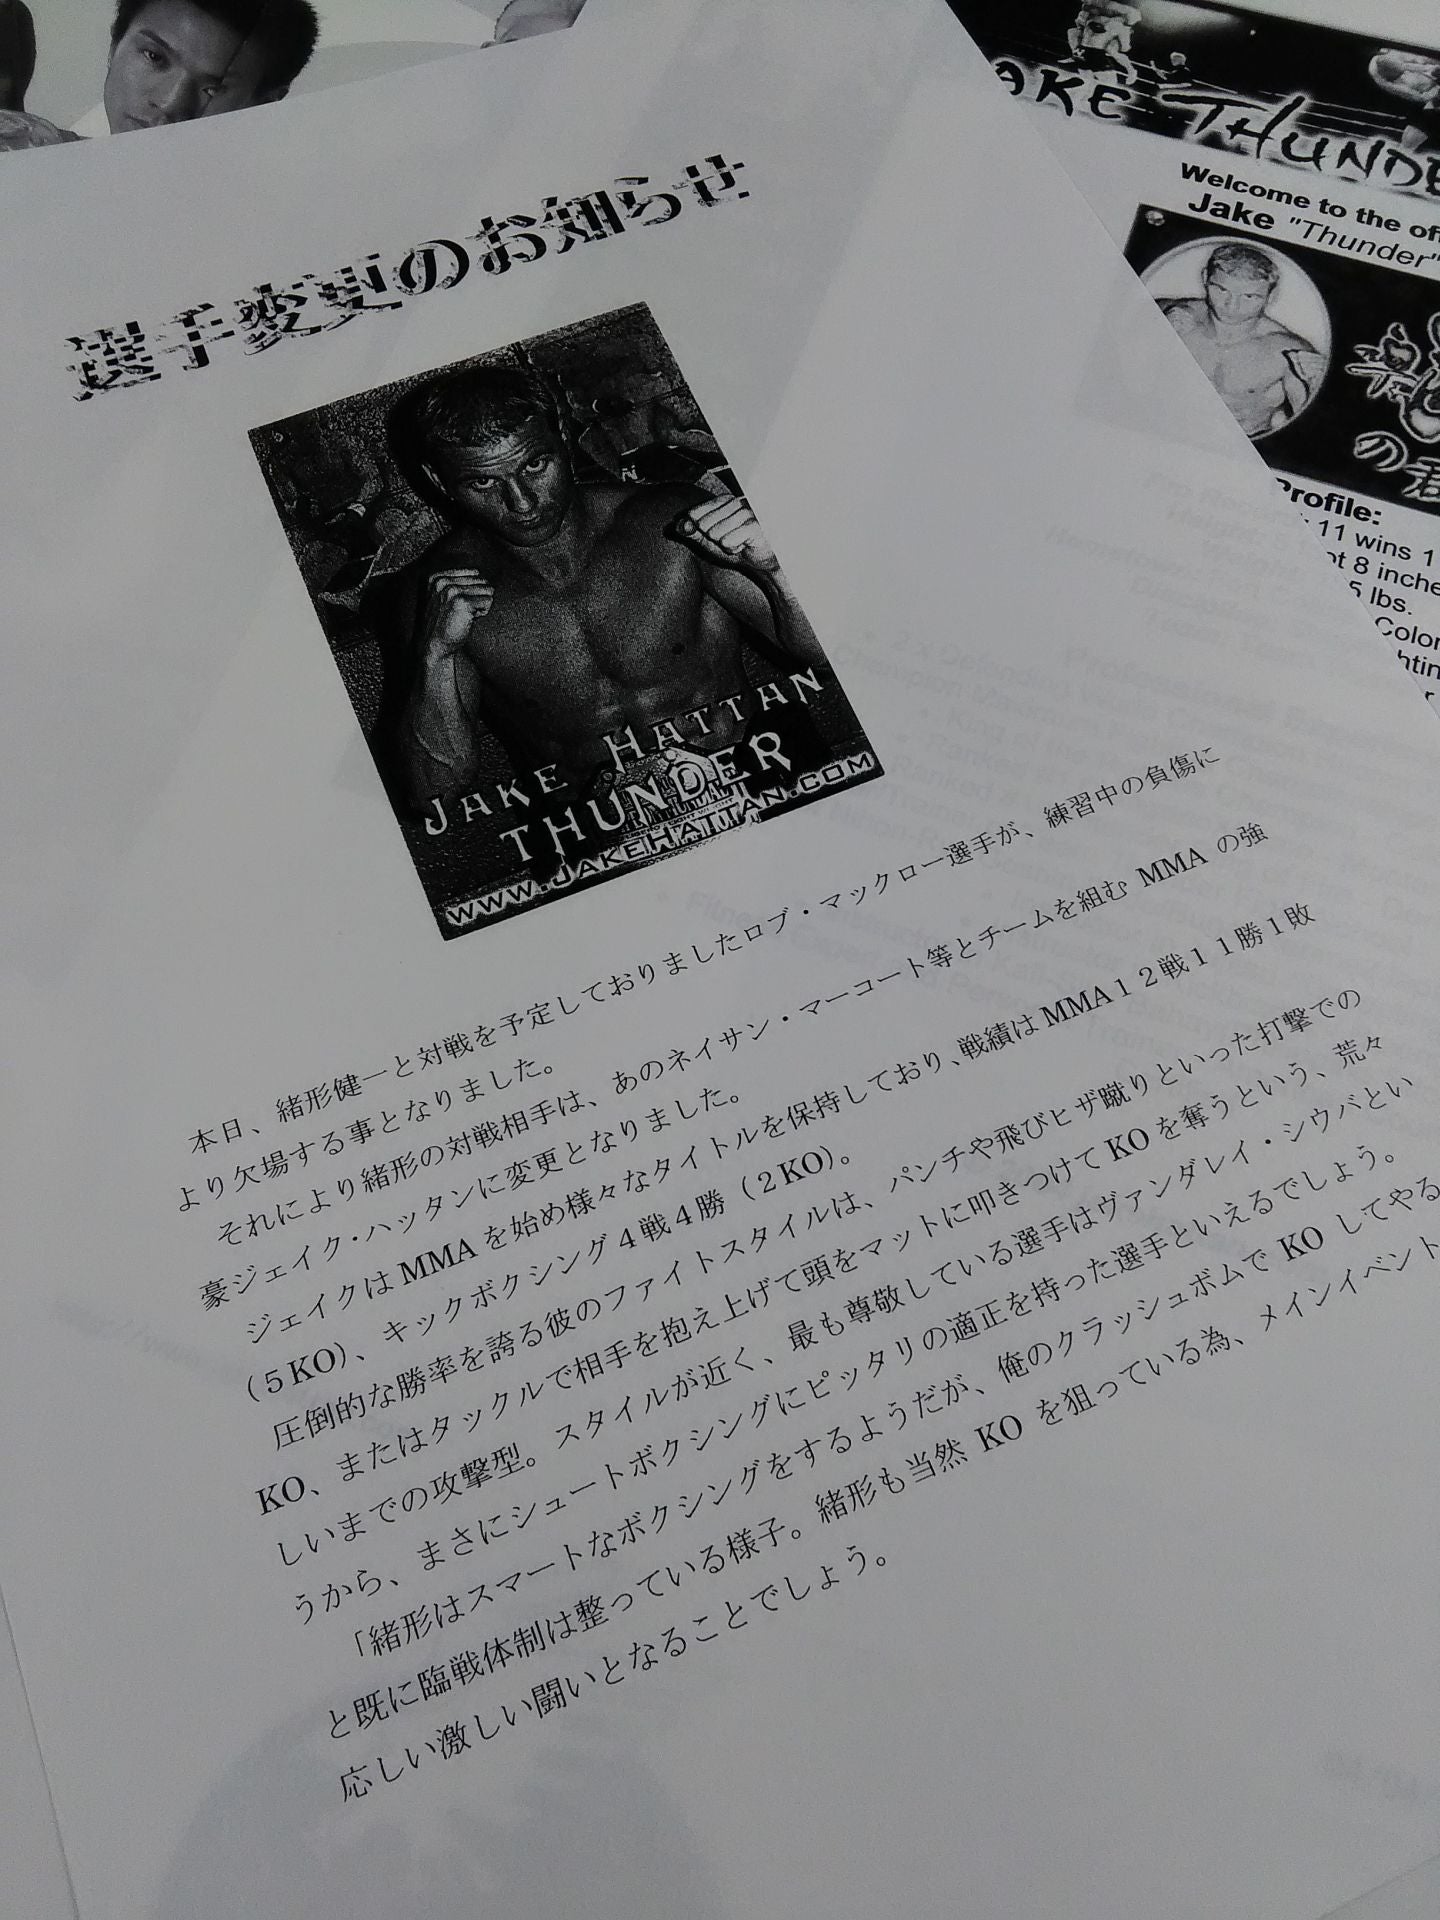 選手変更のお知らせ
JAKE HATTAN
THUNDER
WWW.JAKEHATTAN.COM
本日、緒形健一と対戦を予定しておりましたロブ・マックロー選手が、練習中の負傷に
より欠場する事となりました。
それにより緒形の対戦相手は、あのネイサン・マーコート等とチームを組む MMA の強
豪ジェイク・ハッタンに変更となりました。
ジェイクは MMA を始め様々なタイトルを保持しており、戦績は MMA１２戦１１勝１敗
（５KO）、キックボクシング４戦４勝（２KO）。
圧倒的な勝率を誇る彼のファイトスタイルは、パンチや飛びヒザ蹴りといった打撃での
KO、またはタックルで相手を抱え上げて頭をマットに叩きつけて KO を奪うという、荒々
しいまでの攻撃型。スタイルが近く、最も尊敬している選手はヴァンダレイ・シウバとい
うから、まさにシュートボクシングにピッタリの適正を持った選手といえるでしょう。
「緒形はスマートなボクシングをするようだが、俺のクラッシュボムで KO してやる
と既に臨戦体制は整っている様子。緒形も当然 KO を狙っている為、メインイベント
応しい激しい闘いとなることでしょう。
AKE THUNDE
Welcome to the off
Jake "Thunder"
の君
Profile:
11 wins 1
ot 8 inche
5 lbs.
Color
htin